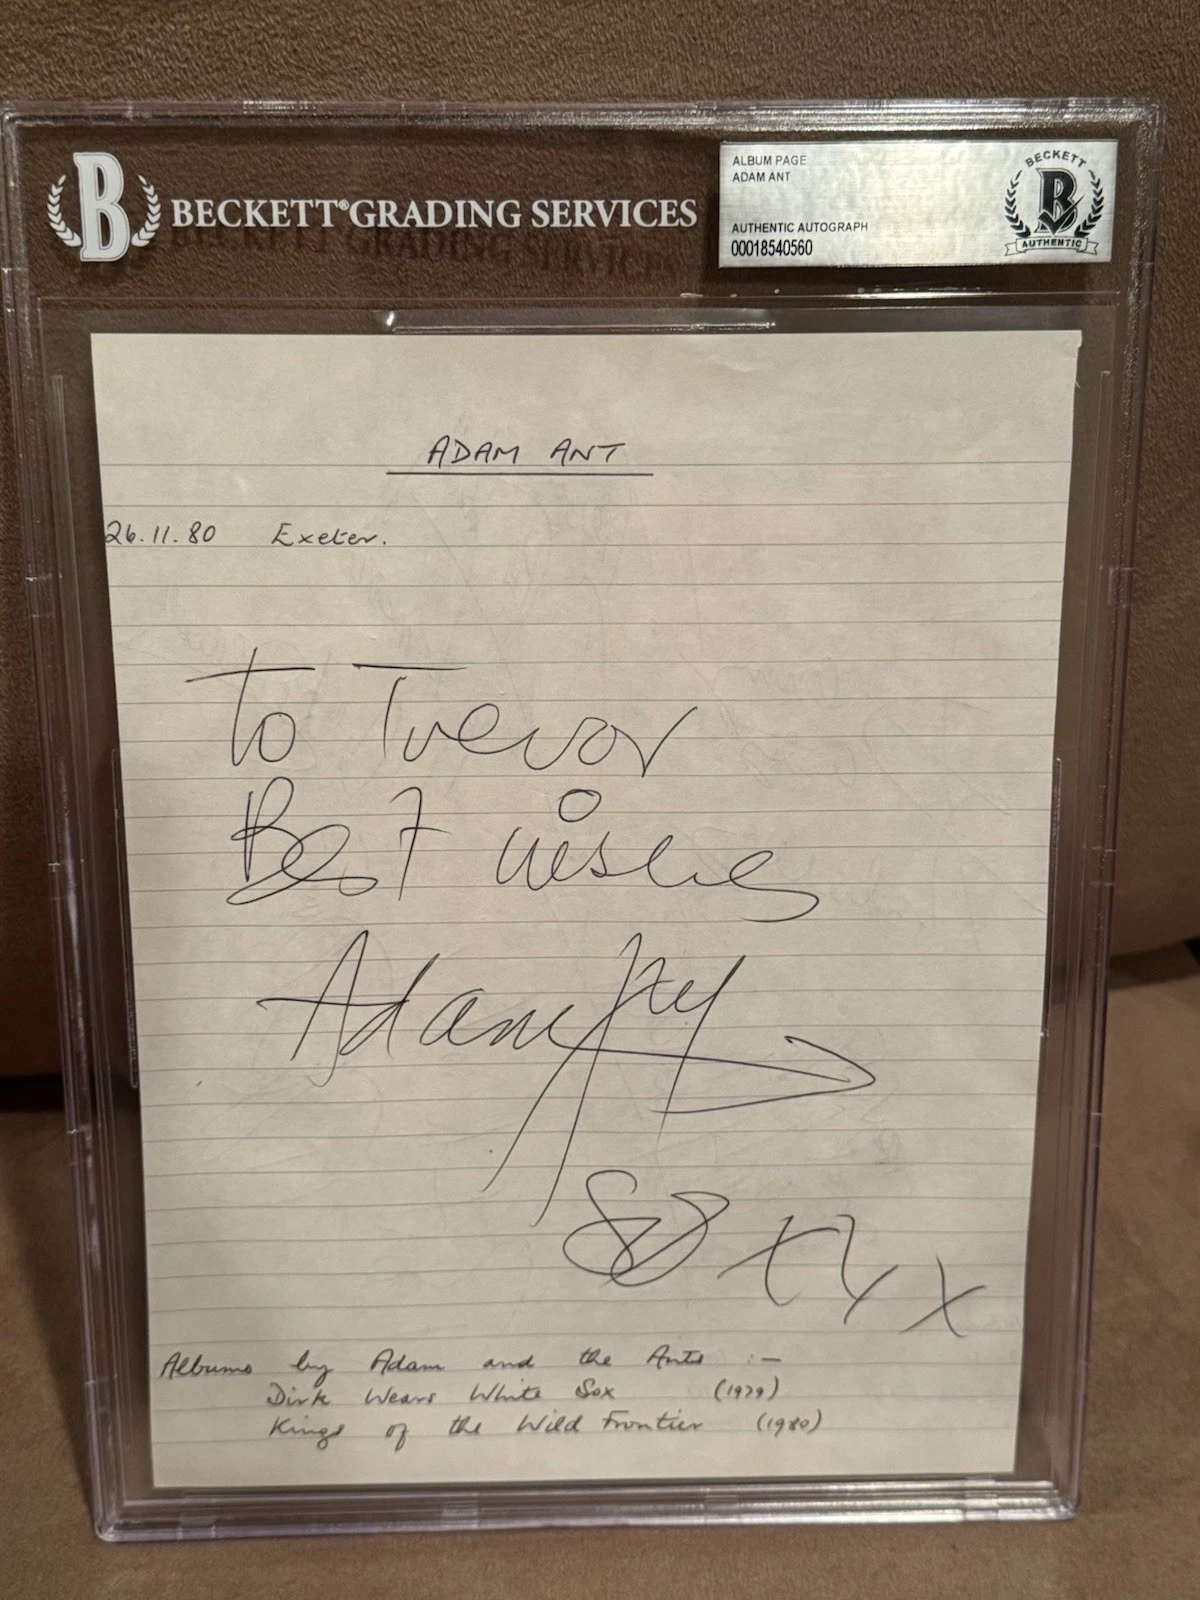 B BECKETT® GRADING SERVICES
ALBUM PAGE
ADAM ANT
AUTHENTIC AUTOGRAPH
00018540560
BECKETT
B
AUTHENTIC
ADAM ANT
26.11.80 Exeter.
To Trevor
Best wishes
Adam Ant
80 x x x
Albums by Adam and the Ants :-
Dirk Wears White Sox (1979)
Kings of the Wild Frontier (1980)